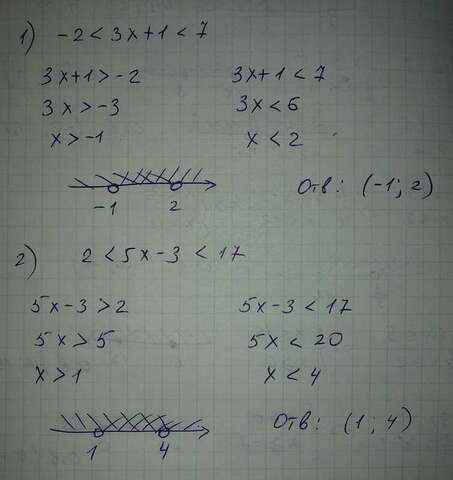 1) -2 < 3x+1 < 7
3x+1 > -2 3x+1 < 7
3x > -3 3x < 6
x > -1 x < 2
-1 2 Отв: (-1; 2)
2) 2 < 5x-3 < 17
5x-3 > 2 5x-3 < 17
5x > 5 5x < 20
x > 1 x < 4
1 4 Отв: (1; 4)